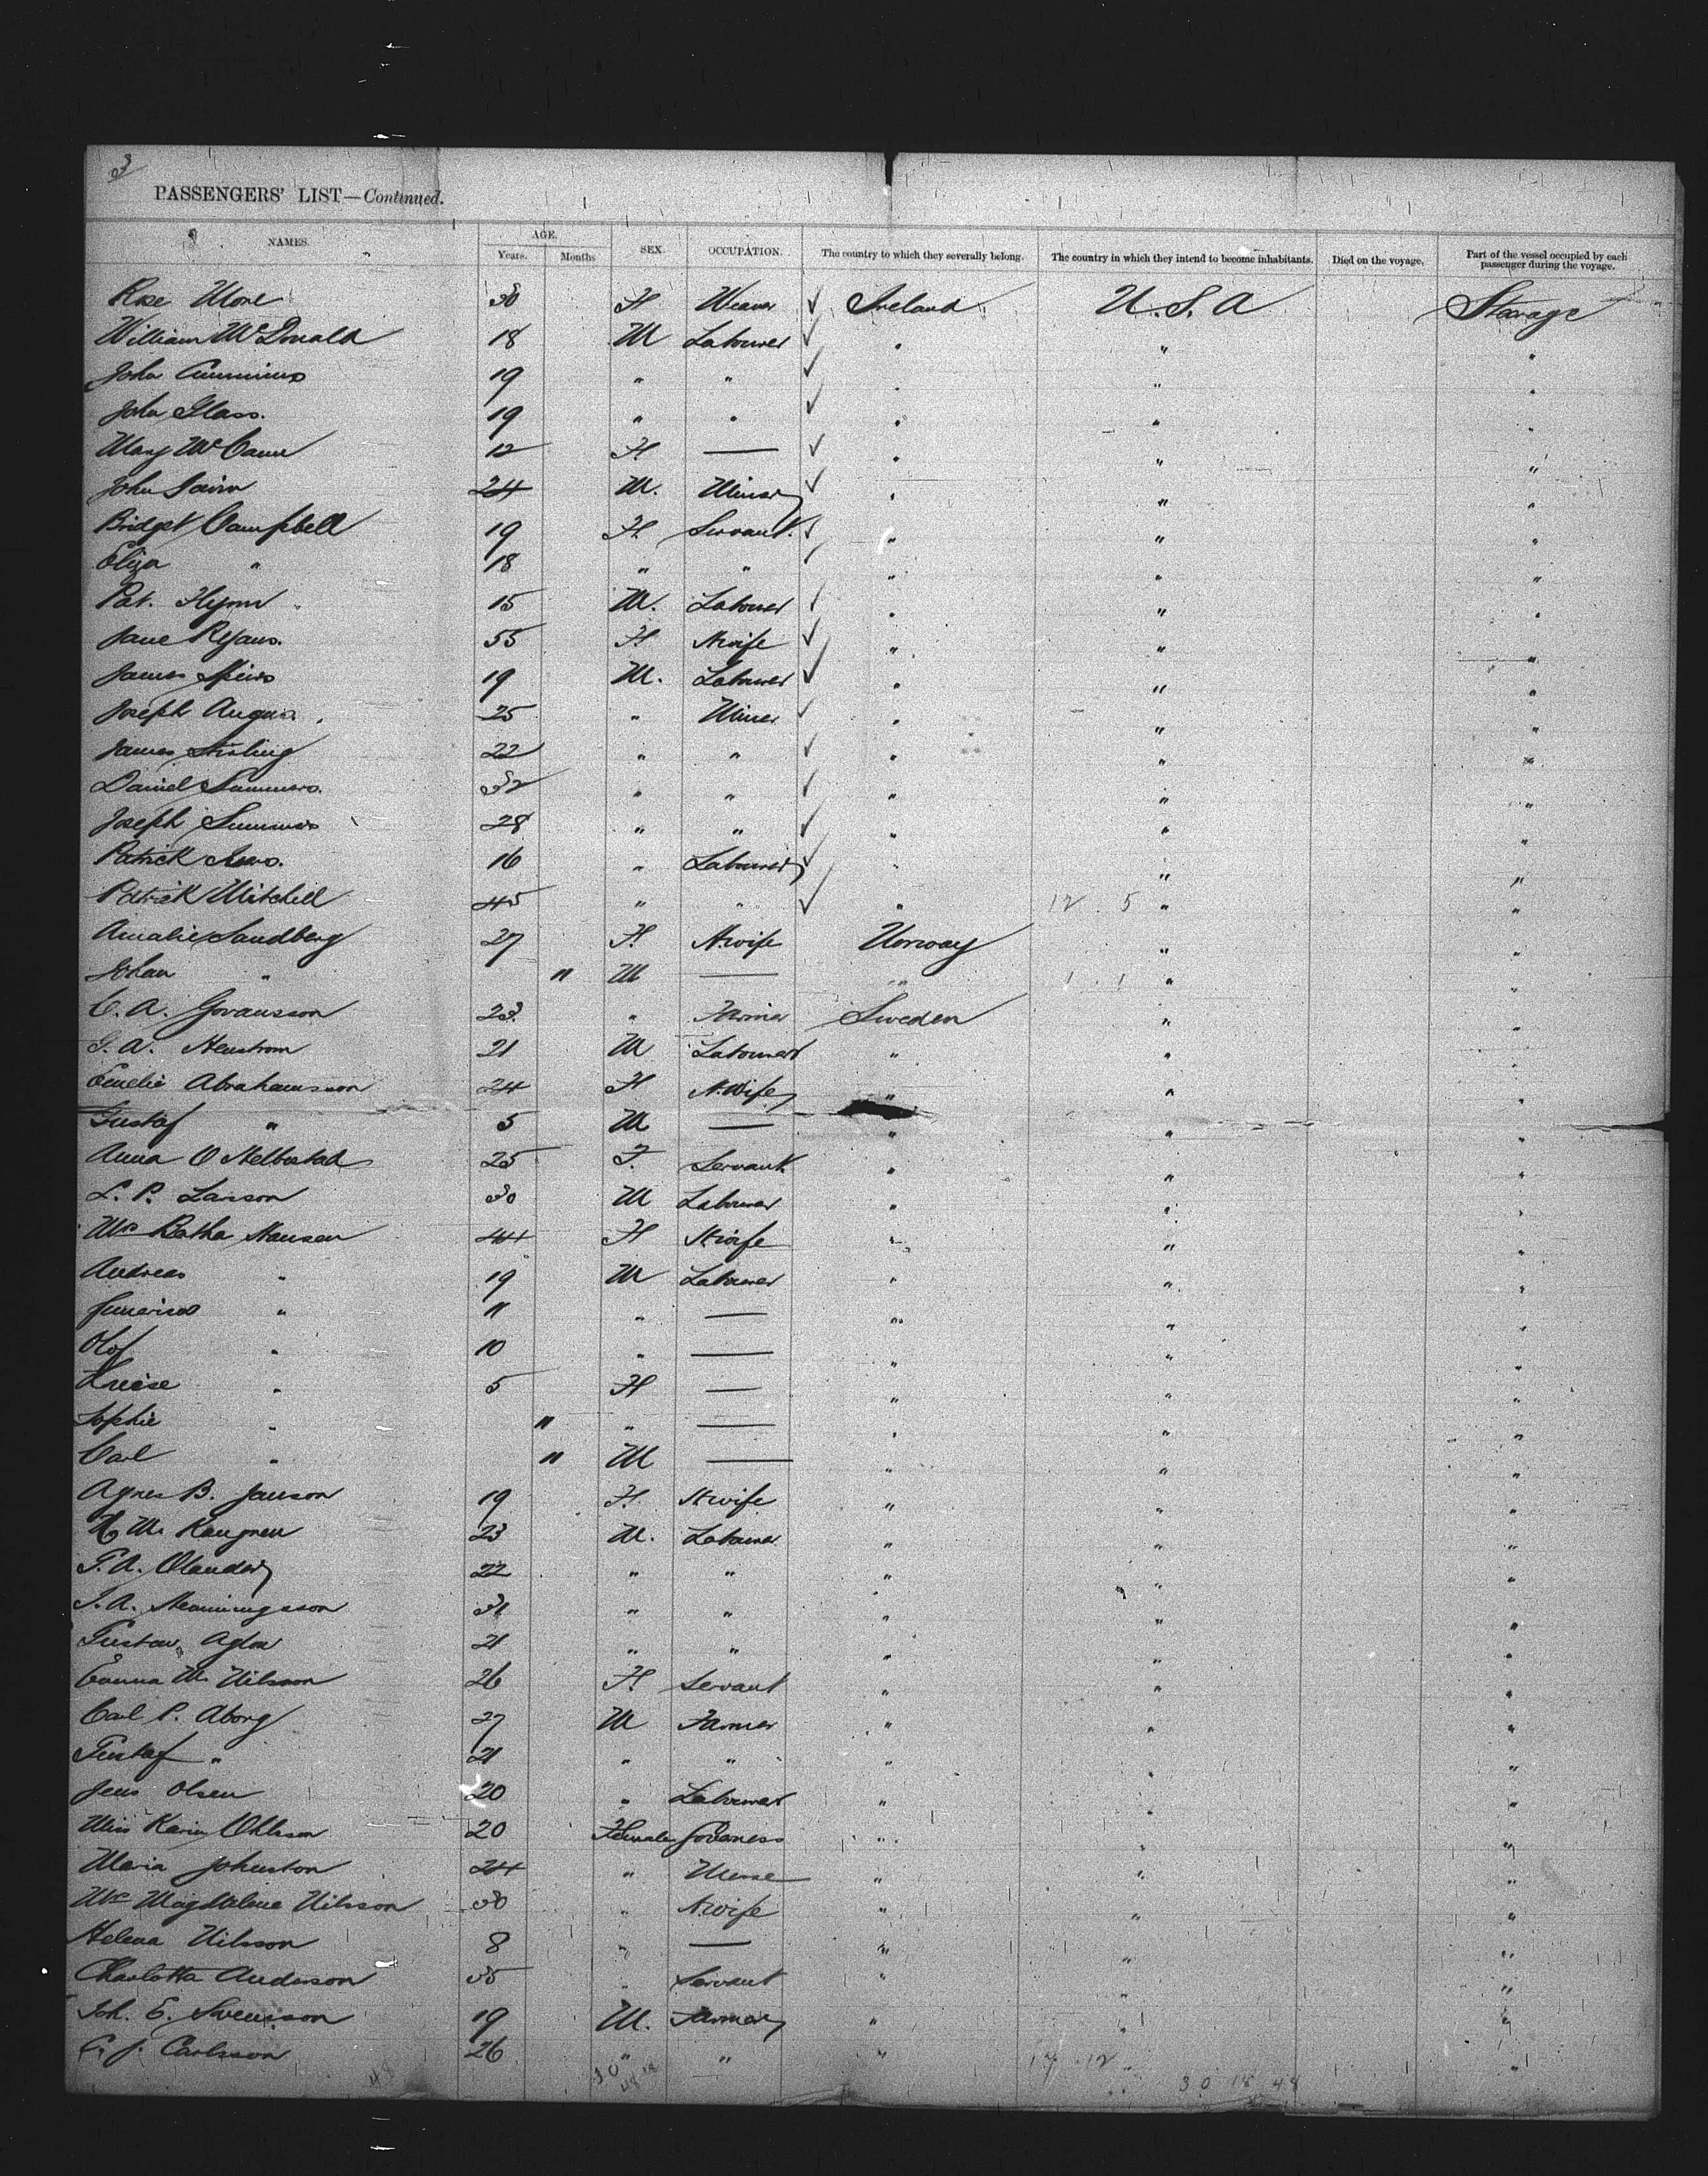 3
PASSENGERS' LIST—Continued.
NAMES. AGE. Years. Months SEX. OCCUPATION. The country to which they severally belong. The country in which they intend to become inhabitants. Died on the voyage. Part of the vessel occupied by each passenger during the voyage.
Rose 30 F Weaver ✓ Ireland U.S.A Steerage
William McDonald 18 M Labourer ✓ " " "
John Cummins 19 " " ✓ " " "
John Glass. 19 " " ✓ " " "
Mary McCann 12 F — ✓ " " "
John 24 M. Miner ✓ " " "
Bridget Campbell 19 F. Servant. ✓ " " "
Eliza " 18 " " ✓ " " "
Pat. Flynn 15 M. Labourer ✓ " " "
Jane 55 F H.wife ✓ " " "
James Speirs 19 M. Labourer ✓ " " "
Joseph Angus. 25 " Miner ✓ " " "
James Stirling 22 " " ✓ " " "
Daniel Summers. 32 " " ✓ " " "
Joseph Summers 28 " " ✓ " " "
Patrick 16 " Labourer ✓ " " "
Patrick Mitchell 45 " " ✓ " 12 5 " "
Amalie Sandberg 27 F. H.wife Norway " "
Johan " 11 M — " 1 1 " "
C. A. Goransson 23 " Farmer Sweden " "
G. A. 21 M Labourer " " "
Emelie Abrahamsson 24 F H.Wife " " "
Gustaf " 5 M — " " "
Anna O 25 F. Servant " " "
L. P. Larsson 30 M Labourer " " "
Mrs Hansen 44 F H.wife " " "
Andreas " 19 M Labourer " " "
" 11 " — " " "
Olof " 10 " — " " "
" 5 F — " " "
Sophie " 11 " — " " "
Carl " 11 M — " " "
Agnes B. Janson 19 F. H.wife " " "
M. 23 M. Labourer " " "
A. Olander 22 " " " " "
A. Henningsson 31 " " " " "
Gustav 21 " " " " "
Emma M. Nilsson 26 F. Servant " " "
Carl P. Aborg 27 M Farmer " " "
Gustaf " 21 " " " " "
Jens Olsen 20 " Labourer " " "
Miss Karin Ohlsson 20 Female Governess " " "
Maria Johnston 24 " Nurse " " "
Mrs Magdalena Nilsson 30 " H.wife " " "
Helena Nilsson 8 " — " " "
Charlotta Anderson 35 " Servant " " "
Joh. E. Svensson 19 M. Farmer " " "
C. J. Carlsson 26 " " " 17 12 " "
48 30 18 30 18 48